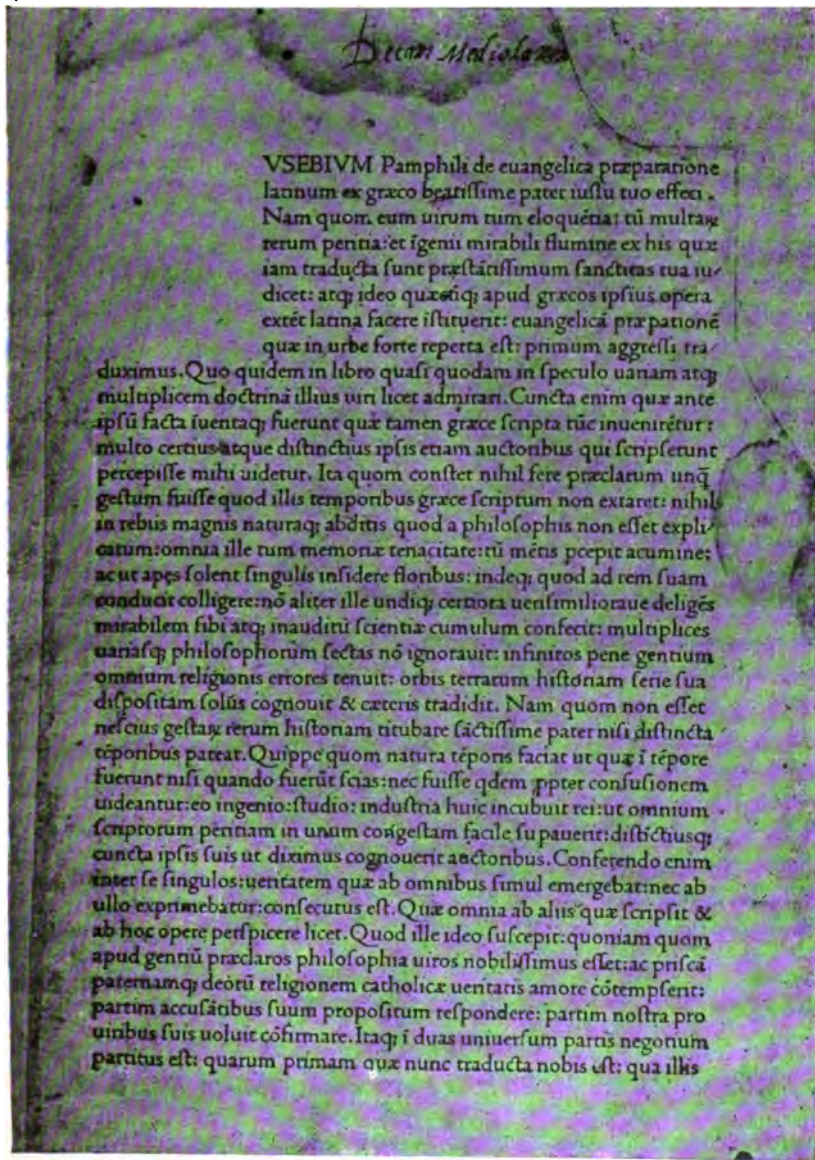 VSEBIVM Pamphili de euangelica præparatione
latinum ex græco beatissime pater iussu tuo effeci.
Nam quom eum uirum tum eloquẽtia: tũ multaꝝ
rerum peritia: et ĩgenii mirabili flumine ex his quæ
iam traducta sunt præstãtissimum sanctitas tua iu/
dicet: atq; ideo quæcũq; apud græcos ipsius opera
extẽt latina facere ĩstituerit: euangelicã præpationẽ
quæ in urbe forte reperta est: primum aggressi tra/
duximus. Quo quidem in libro quasi quodam in speculo uariam atq;
multiplicem doctrinã illius uiri licet admirari. Cuncta enim quæ ante
ipsũ facta ĩuentaq; fuerunt quæ tamen græce scripta tũc inuenirẽtur:
multo certius atque distinctius ipsis etiam auctoribus qui scripserunt
percepisse mihi uidetur. Ita quom constet nihil fere præclarum unq̃
gestum fuisse quod illis temporibus græce scriptum non extaret: nihil
in rebus magnis naturaq; abditis quod a philosophis non esset expli/
catum: omnia ille tum memoriæ tenacitate: tũ mẽtis pcepit acumine:
ac ut apes solent singulis insidere floribus: indeq; quod ad rem suam
conducit colligere: nõ aliter ille undiq; certiora uerisimilioraue deligẽs
mirabilem sibi atq; inauditũ scientiæ cumulum confecit: multiplices
uariasq; philosophorum sectas nõ ignorauit: infinitos pene gentium
omnium religionis errores tenuit: orbis terrarum historiam serie sua
dispositam solus cognouit & cæteris tradidit. Nam quom non esset
nescius gestaꝝ rerum historiam titubare sãctissime pater nisi distincta
tẽporibus pateat. Quippe quom natura tẽporis faciat ut quæ ĩ tẽpore
fuerunt nisi quando fuerũt scias: nec fuisse qdem ꝓpter confusionem
uideantur: eo ingenio: studio: industria huic incubuit rei: ut omnium
scriptorum peritiam in unum congestam facile supauerit: distĩctiusq;
cuncta ipsis suis ut diximus cognouerit auctoribus. Conferendo enim
inter se singulos: ueritatem quæ ab omnibus simul emergebat: nec ab
ullo exprimebatur: consecutus est. Quæ omnia ab aliis quæ scripsit &
ab hoc opere perspicere licet. Quod ille ideo suscepit: quoniam quom
apud gentiũ præclaros philosophia uiros nobilissimus esset: ac priscã
paternamq; deorũ religionem catholicæ ueritatis amore cõtempserit:
partim accusãtibus suum propositum respondere: partim nostra pro
uiribus suis uoluit cõfirmare. Itaq; ĩ duas uniuersum partis negotium
partitus est: quarum primam quæ nunc traducta nobis est: qua illis